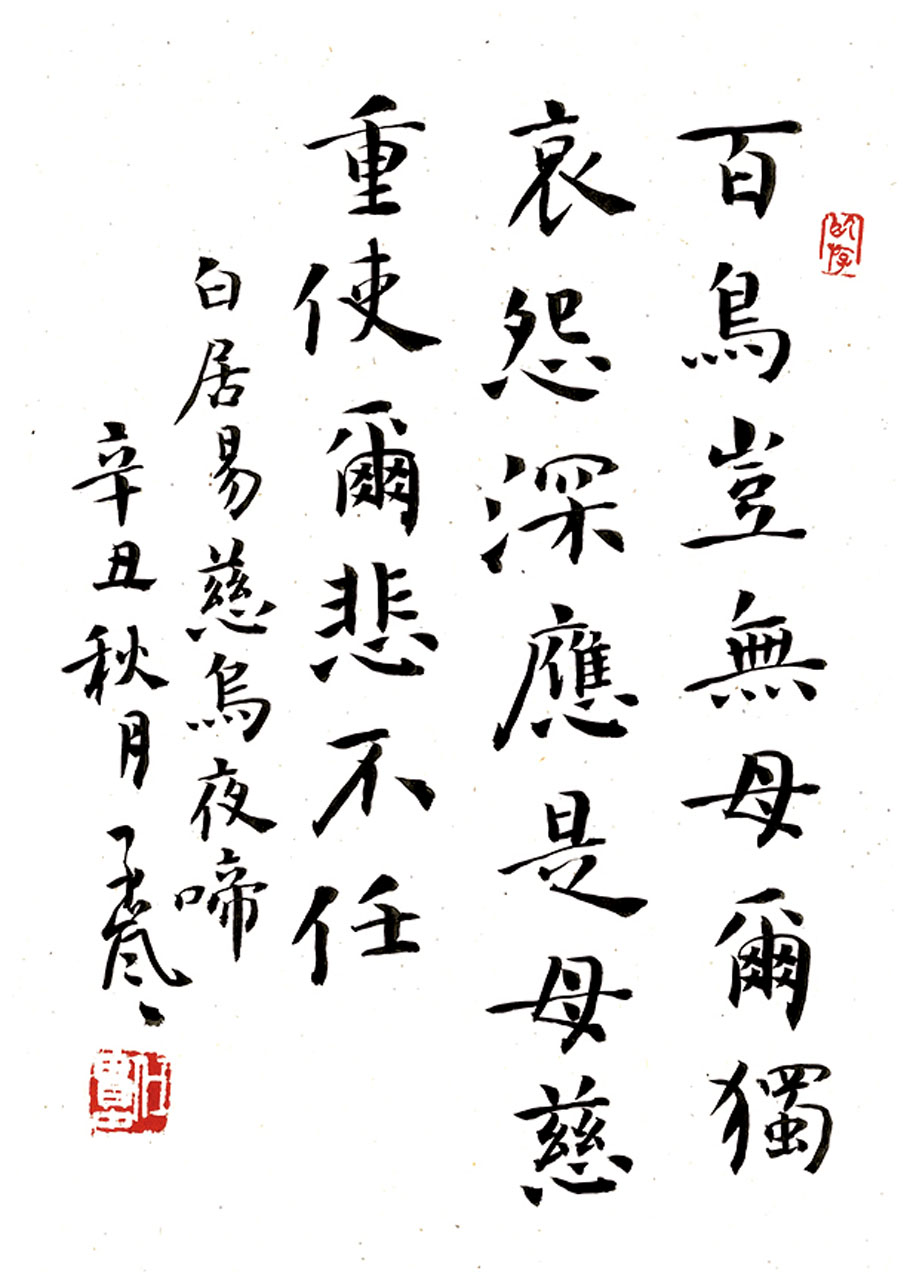 百鳥豈無母爾獨
哀怨深應是母慈
重使爾悲不任
白居易慈烏夜啼
辛丑秋月